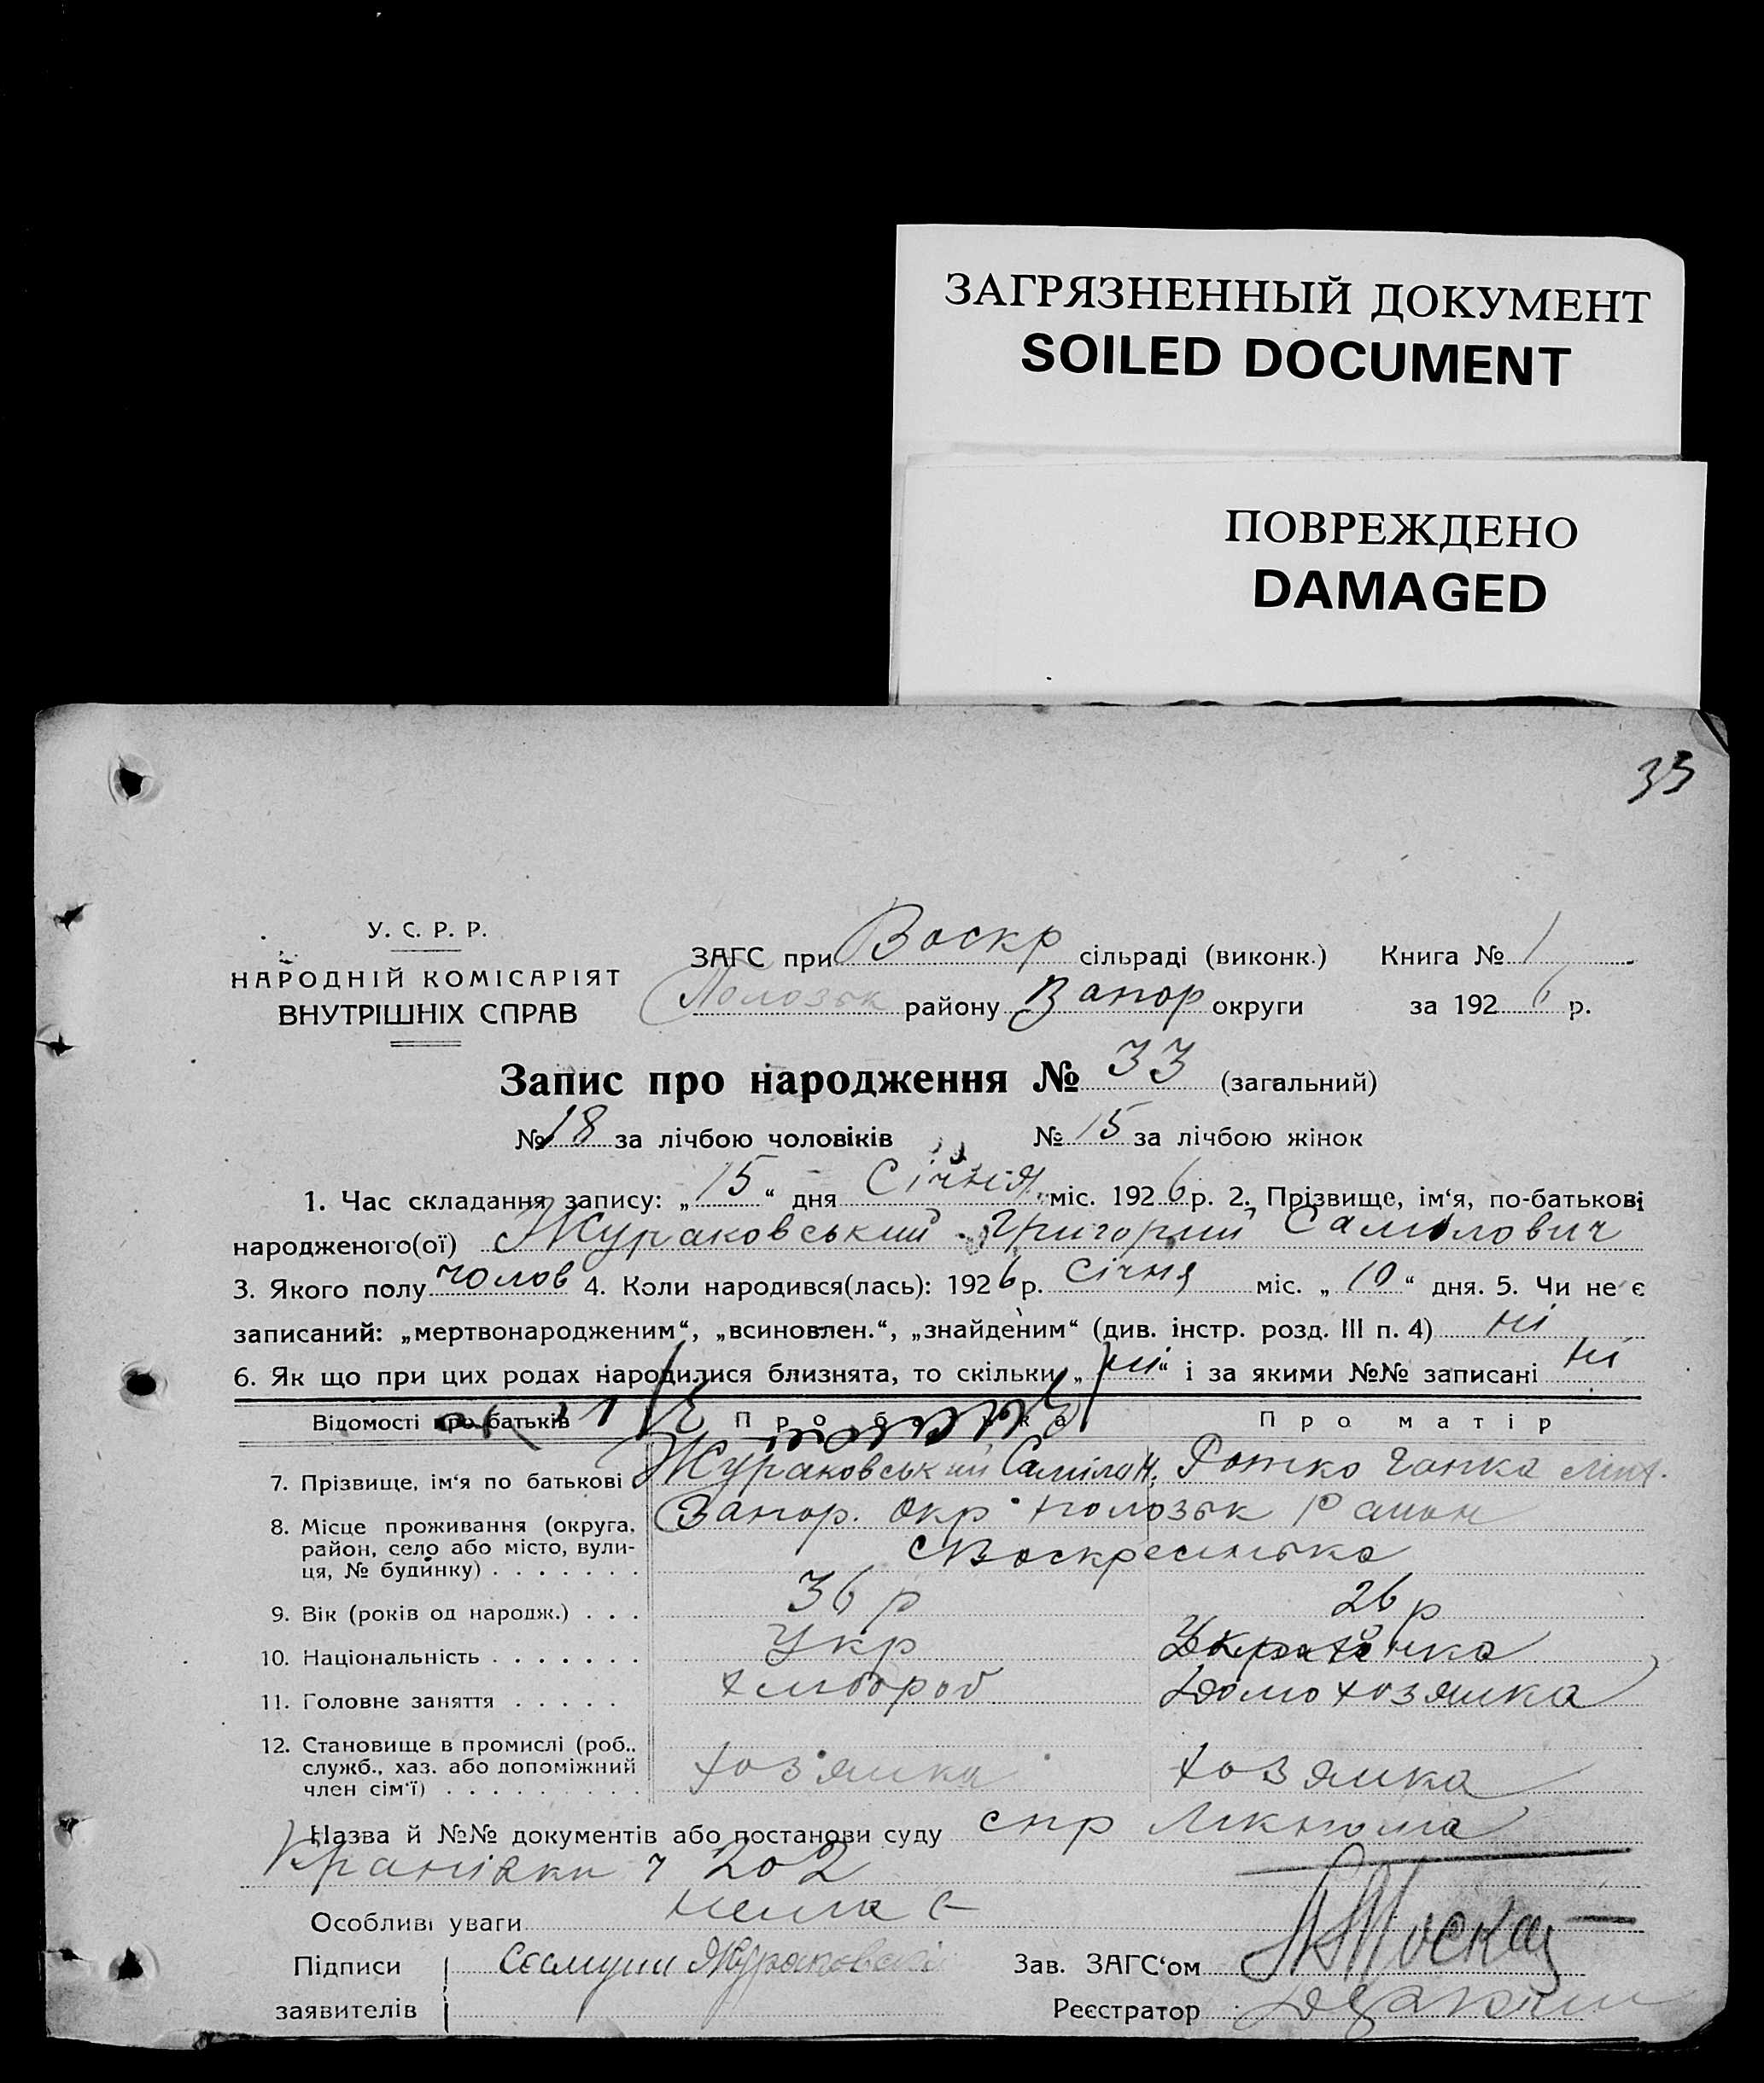 ЗАГРЯЗНЕННЫЙ ДОКУМЕНТ
SOILED DOCUMENT
ПОВРЕЖДЕНО
DAMAGED
33
У. С. Р. Р.
НАРОДНІЙ КОМІСАРІЯТ
ВНУТРІШНІХ СПРАВ
ЗАГС при Воскр сільраді (виконк.) Книга № 1
Полозьк району Запор округи за 1926 р.
Запис про народження № 33 (загальний)
№ 18 за лічбою чоловіків № 15 за лічбою жінок
1. Час складання запису: „15“ дня Січня міс. 1926 р. 2. Прізвище, ім‘я, по-батькові
народженого(ої) Жураковський Григорий Самілович
3. Якого полу чолов 4. Коли народився(лась): 1926 р. Січня міс. „10“ дня. 5. Чи не є
записаний: „мертвонародженим“, „всиновлен.“, „знайденим“ (див. інстр. розд. III п. 4) ні
6. Як що при цих родах народилися близнята, то скільки „ні“ і за якими №№ записані ні
Відомості про батьків Про батька Про матір
7. Прізвище, ім‘я по батькові Жураковський Самілон, Ганка
8. Місце проживання (округа, район, село або місто, вулиця, № будинку) Запор. Окр Полозьк Район
9. Вік (років од народж.) 36 р 26 р
10. Національність Укр Українка
11. Головне заняття Хлібороб Домохозяйка
12. Становище в промислі (роб., служб., хаз. або допоміжний член сім‘ї) хозяйка
Назва й №№ документів або постанови суду спр
ч 202
Особливі уваги нема
Підписи Жураковский Зав. ЗАГС‘ом
заявителів Реєстратор